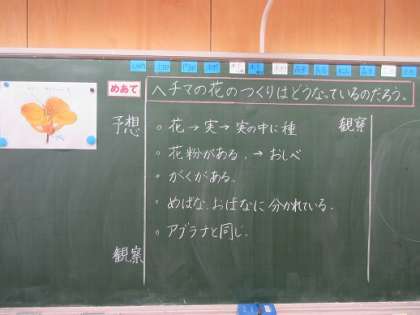 めあて
ヘチマの花のつくりはどうなっているのだろう。
予想
○ 花→実→実の中に種
○ 花粉がある。→おしべ
○ がくがある。
○ めばな、おばなに分かれている。
○ アブラナと同じ。
観察
観察